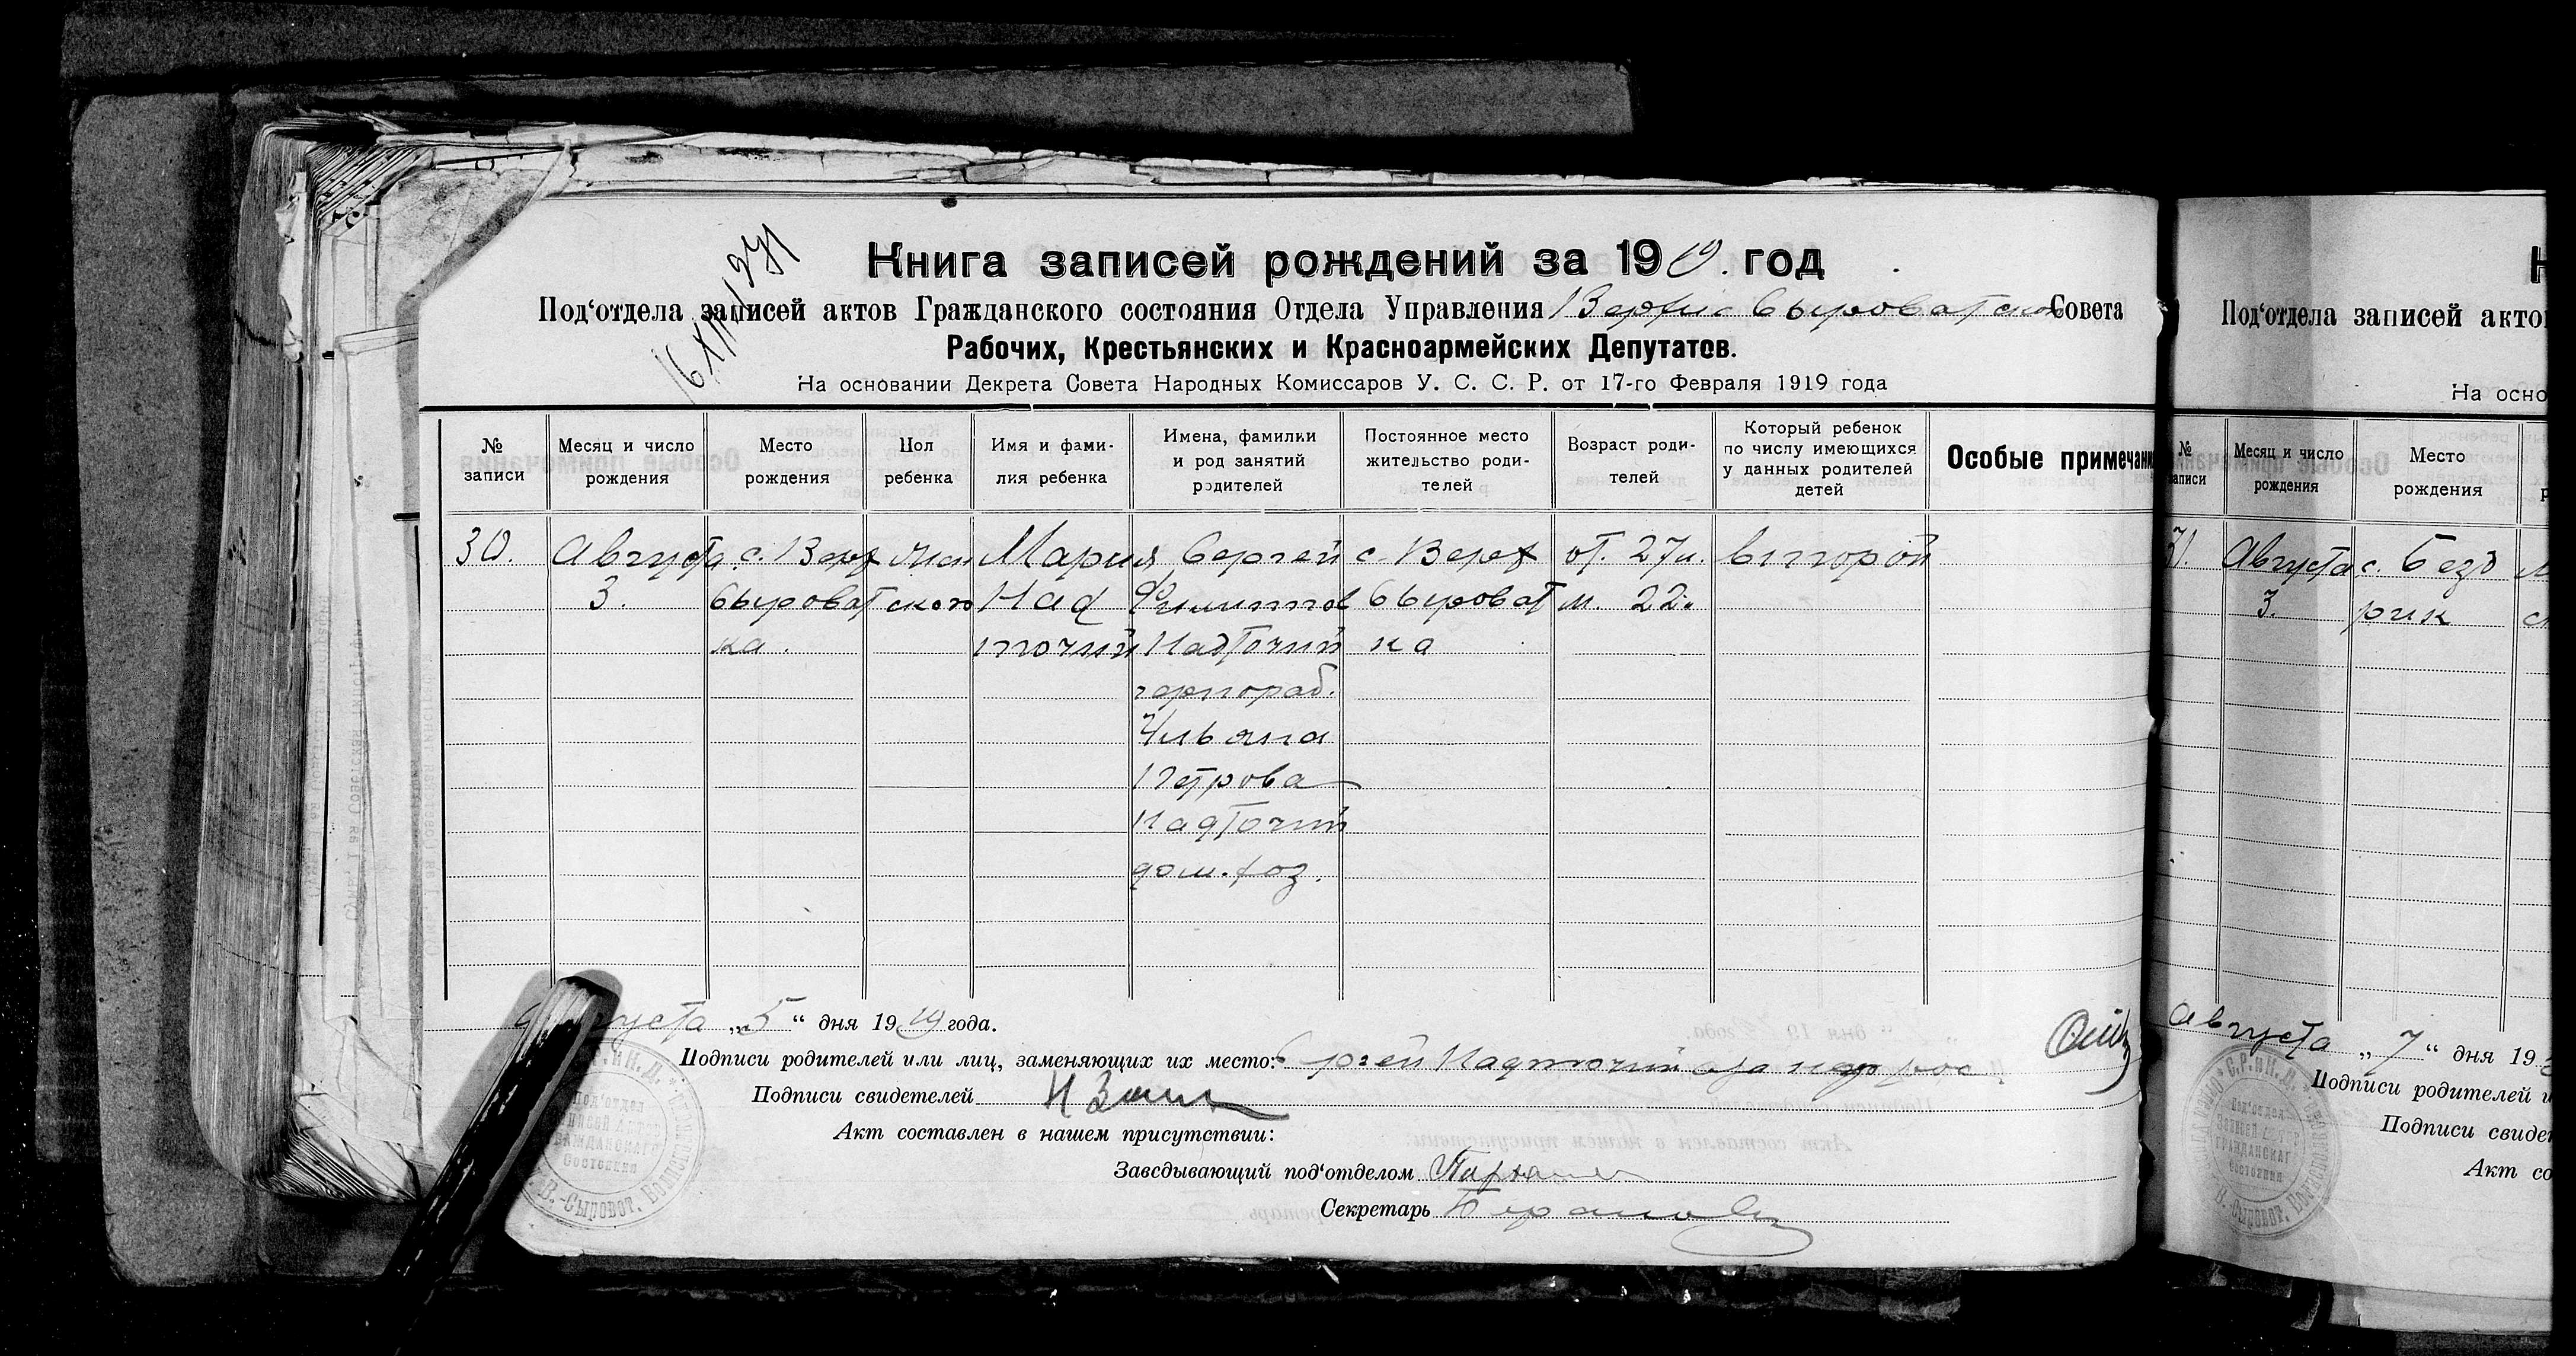 Книга записей рождений за 1919. год
Под‘отдела записей актов Гражданского состояния Отдела Управления Верхне Сыроватской Совета
Рабочих, Крестьянских и Красноармейских Депутатов.
На основании Декрета Совета Народных Комиссаров У. С. С. Р. от 17-го Февраля 1919 года
№ записи
Месяц и число рождения
Место рождения
Пол ребенка
Имя и фами-
лия ребенка
Имена, фамилии
и род занятий
родителей
Постоянное место
жительство роди-
телей
Возраст роди-
телей
Который ребенок
по числу имеющихся
у данных родителей
детей
Особые примечани
30.
Августа
3.
с. Верх
Сыроват
ка.
жен
ского
Мария
Над
точий
Сергей
Филиппов
Надточий
чернораб.
Ульяна
Петрова
Надточий
дом. хоз.
с. Верх
Сыроват
ка
от. 27 л.
м. 22.
второй
Августа „5“ дня 1919 года.
Подписи родителей или лиц, заменяющих их место: Сергей Надточий
Подписи свидетелей
Акт составлен в нашем присутствии:
Заведывающий под‘отделом
Секретарь
Под‘отдел
Записей Актов
Гражданскаг
Состояния
В.-Сыроват. Волисп
Под‘отдела записей акто
На осно
№
записи
Месяц и число
рождения
Место
рождения
31.
Августа
3.
с. Безд
рик
Августа „7“ дня 19
Подписи родителей и
Подписи свиде
Акт со
Под‘отдел
Записей Актов
Гражданскаг
Состояния